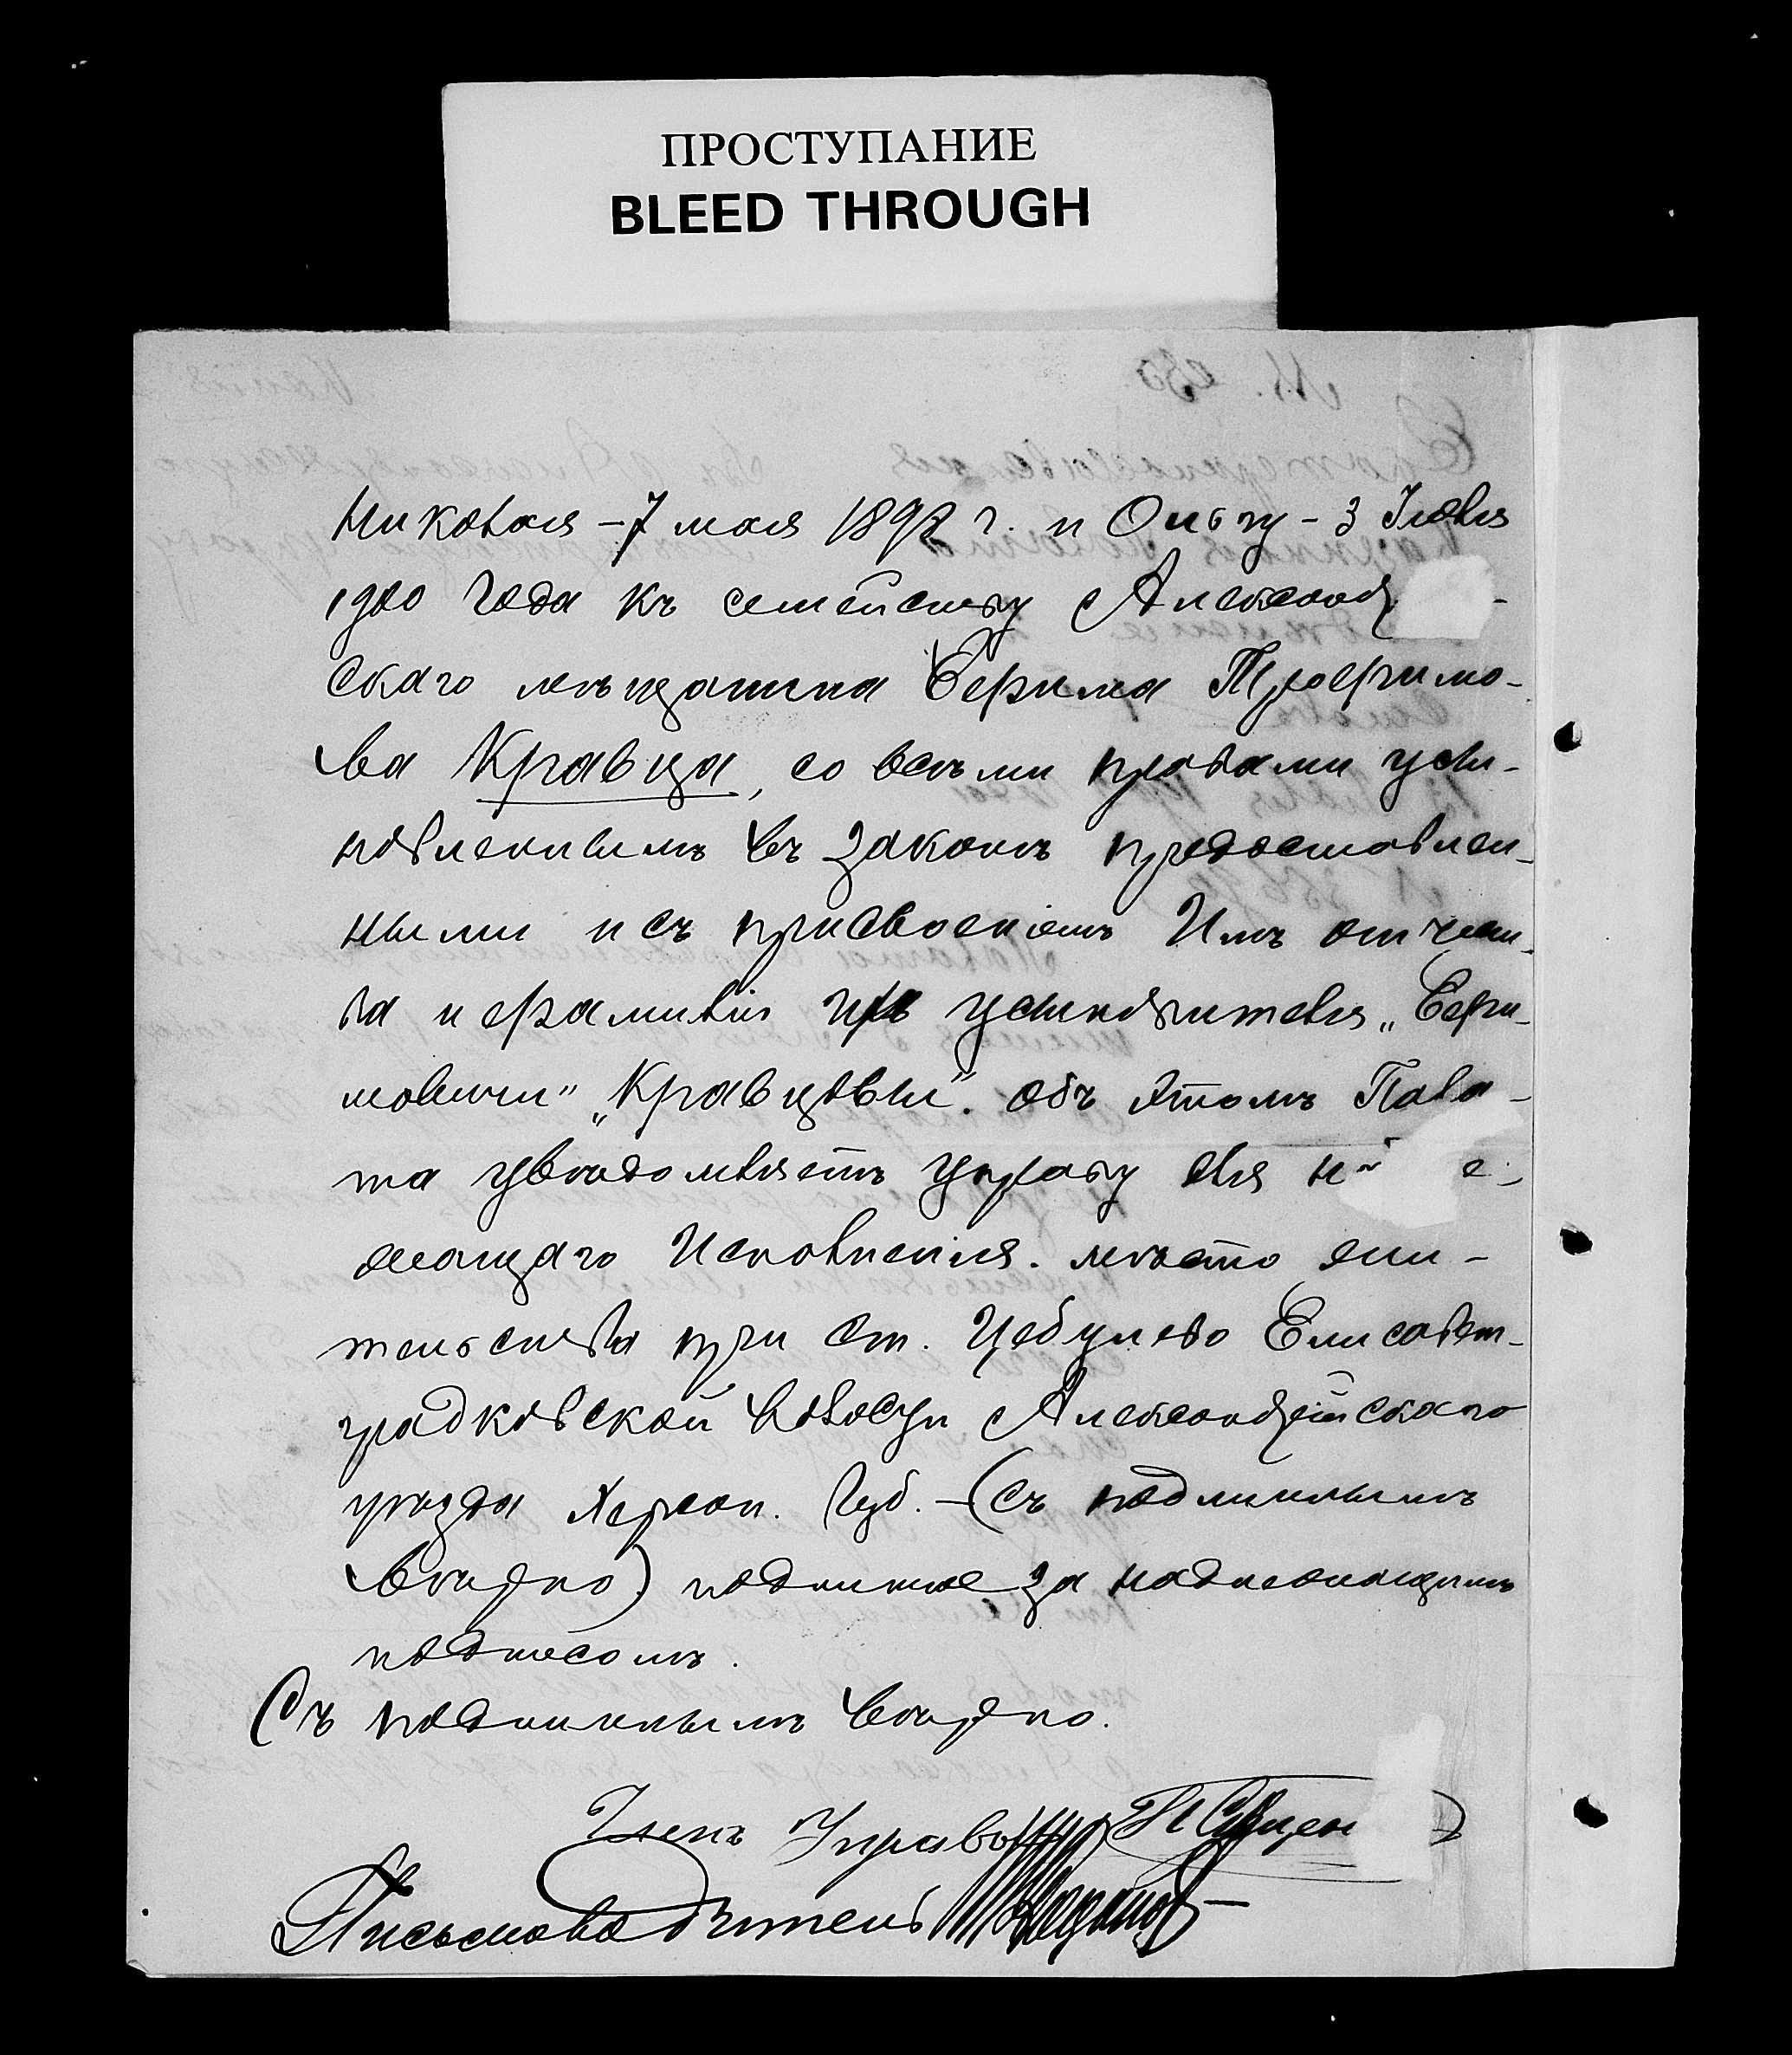 ПРОСТУПАНИЕ
BLEED THROUGH
Николая – 7 мая 1892 г. и Ольгу – 3 Iюля
1900 года къ семейству Александ
скаго мѣщанина Ефима Трофимо-
ва Кравца, со всѣми правами усы-
новленнымъ въ законѣ предоставлен-
ными и съ присвоенiемъ имъ отчест-
ва и фамилiи усыновителя „Ефи-
мовичи" „Кравцовы". Объ этомъ Пала-
та увѣдомляетъ управу для н е-
жащаго исполненiя. Мѣсто жи-
тельства при ст. Цебулево Елисавет-
градковской волости Александрiйскаго
уѣзда Херсон. Губ. – (Съ подлиннымъ
вѣрно) подлинное за надлежащимъ
подписомъ.
Съ подлиннымъ вѣрно.
Членъ Управы
Письмоводитель